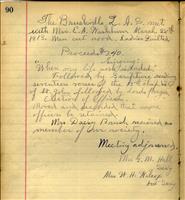 90
The Brushville L.A.S. met
with Mrs. C.A. Washburn March 20th
1913. Men cut wood Ladies Quilted
Proceeds $2.40.
Singing:
"When my life work is ended."
Followed by Scripture reading
seventeen verses of the 15th chapter
of St. John followed by Lord's Prayer
Election of Officers:
Moved and seconded that more
officers be retained.
Mrs. Daisy Banch received as
member of our society.
Meeting adjourned.
Mrs G. M. Hill
Secty
Mrs. W. H. Wilcox